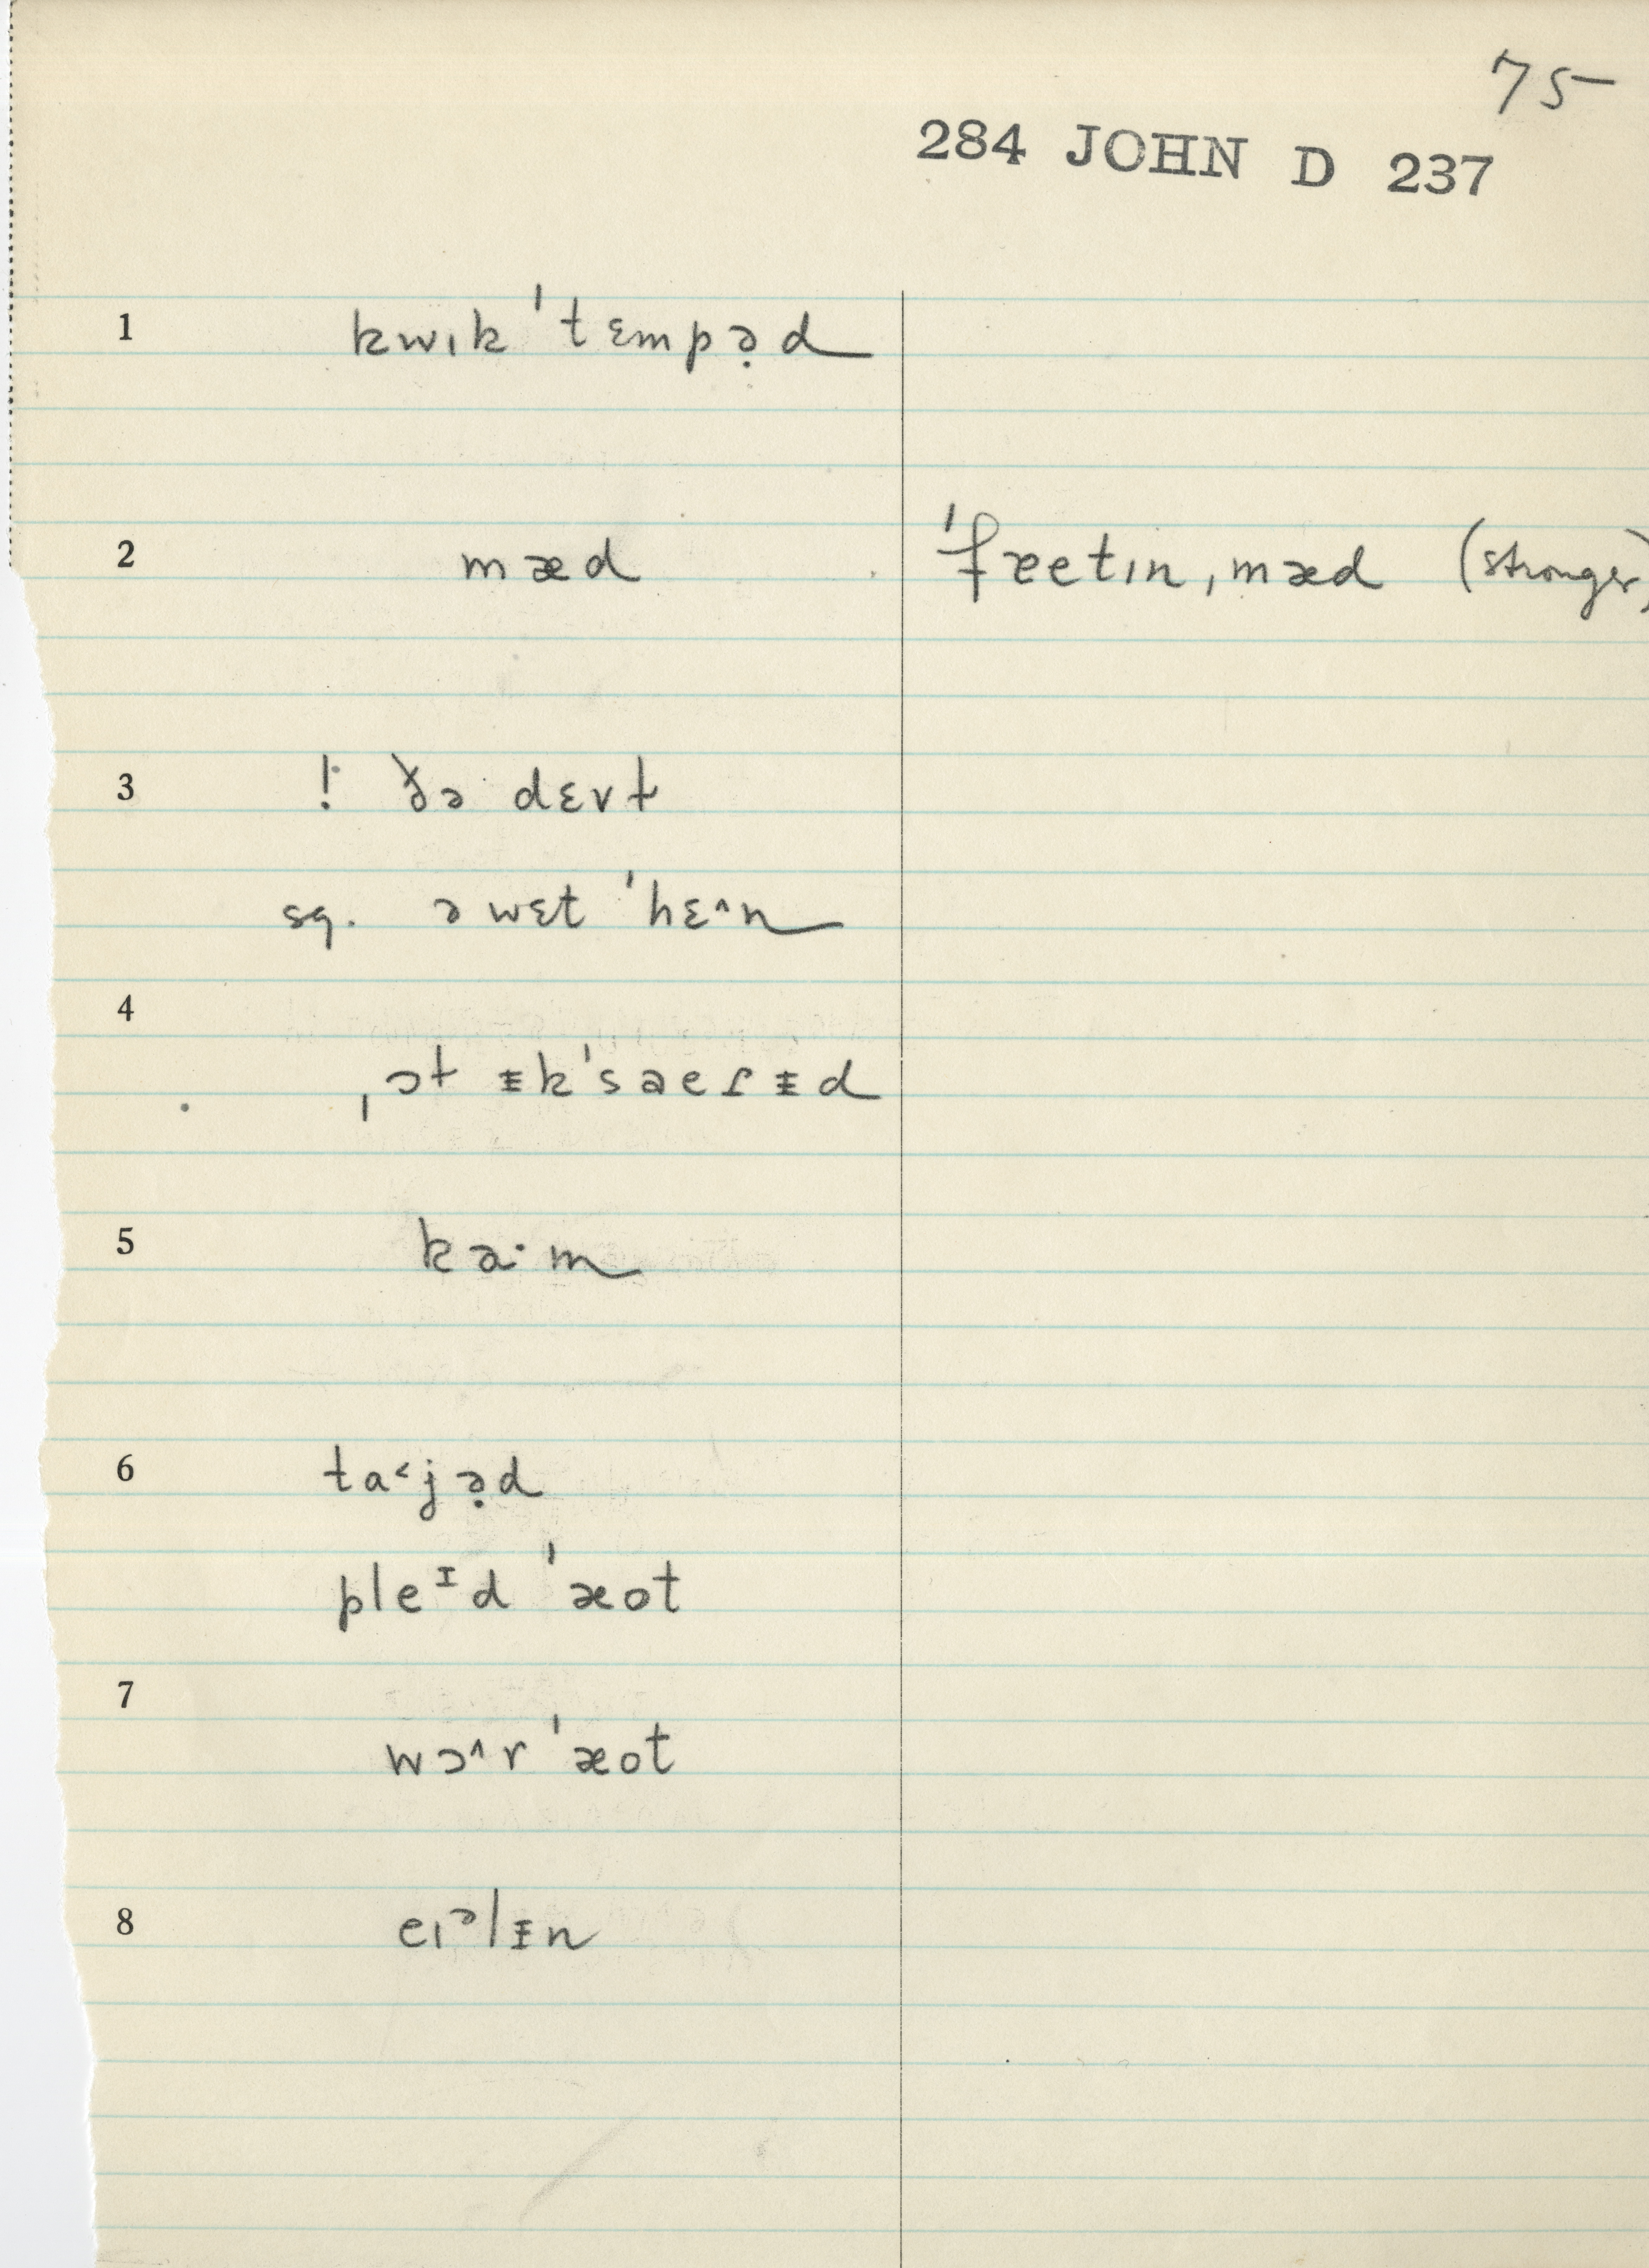 75
284 JOHN D 237
1 kwɪk ˈtɛmpə̣d
2 mæd ˈfæetɪn ˌmæd (stronger)
3 ! ðə dɛvɫ
sq. ə wɛt ˈhɛ^n
4
ˌɔɫ ᵻkˈsaeɾᵻd
5 ka·m
6 ta˂jə̣d
pleᶦd ˈæot
7
wɔ^r ˈæot
8 eɪᵊlᵻn